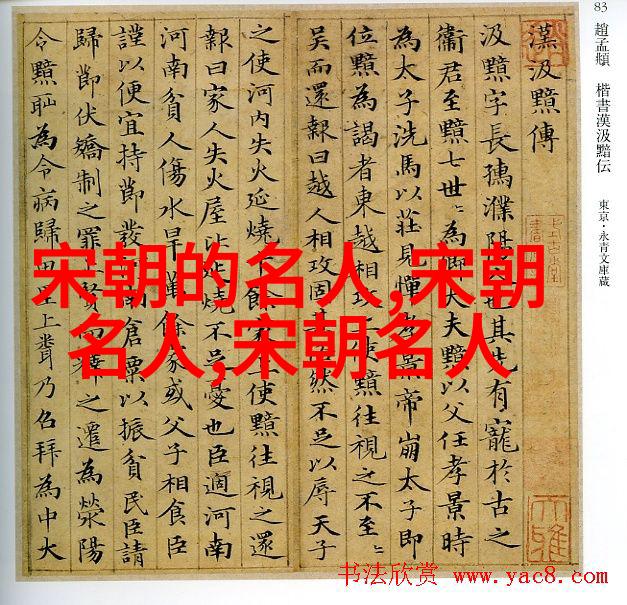 83 趙孟頫 楷書漢汲黯伝 東京・永青文庫蔵
漢汲黯傳
汲黯字長孺濮陽也其先有寵於古之
衞君至黯七世〻為卿大夫黯以父任孝景時
為太子洗馬以莊見憚孝景帝崩太子即
位黯為謁者東越相攻上使黯往視之不至〻
吴而還報曰越人相攻固然不足以辱天子
之使河内失火延燒千餘家上使黯往視之還
報曰家人失火屋比延燒不足憂也臣過河南
河南貧人傷水旱萬餘家或父子相食臣
謹以便宜持節發河南倉粟以振貧民臣請
歸節伏矯制之罪上賢而釋之遷為滎陽
令黯恥為令病歸田里上聞乃召拜為中大
宋朝的名人,宋朝
名人,宋朝名人
书法欣赏 www.yac8.com